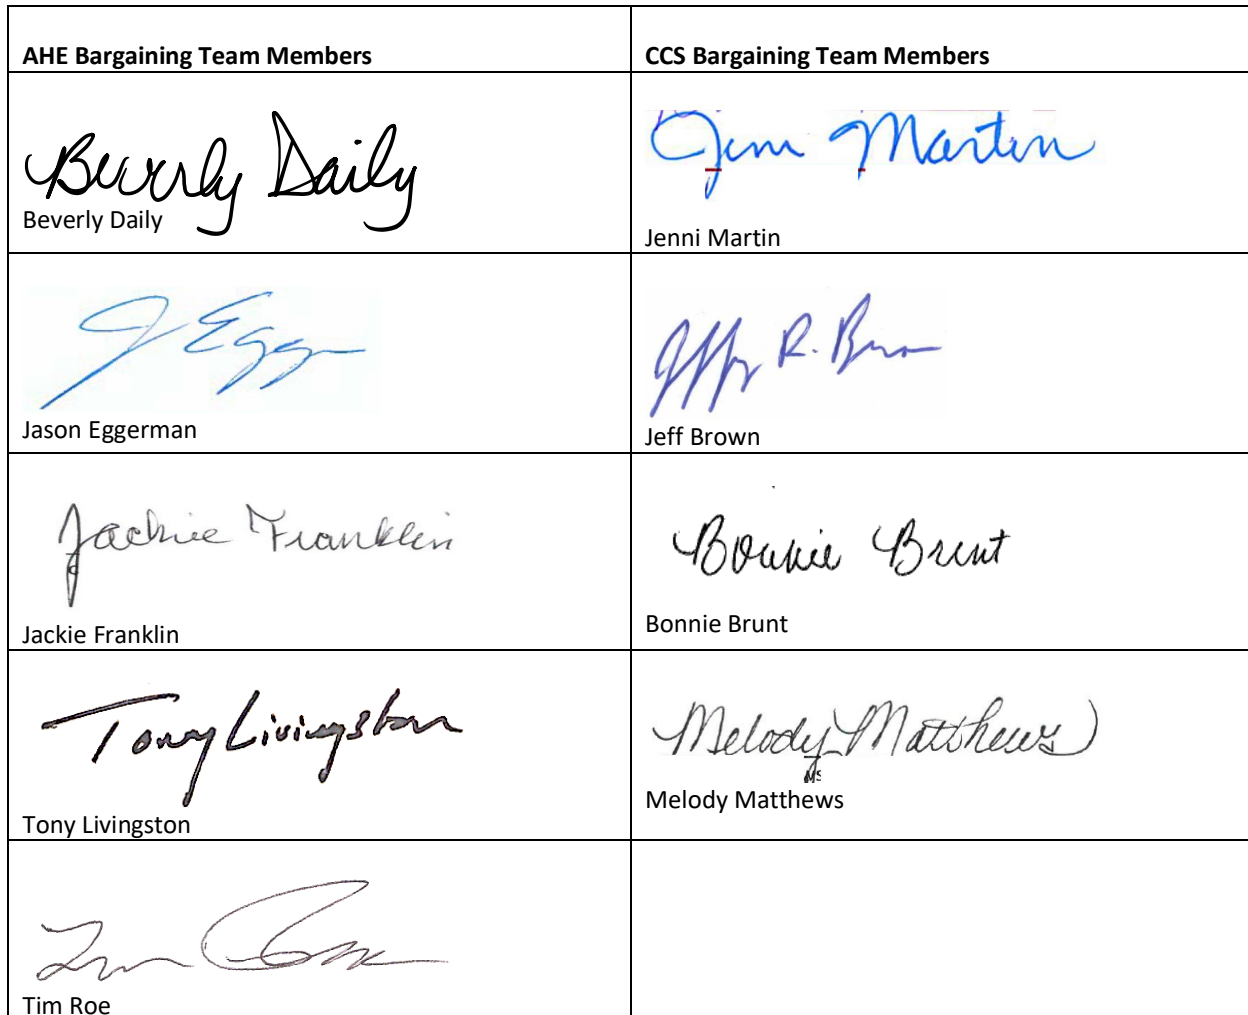 AHE Bargaining Team Members
CCS Bargaining Team Members
Beverly Daily
Beverly Daily
Jenni Martin
Jenni Martin
J Egg
Jason Eggerman
Jeffrey R. Brown
Jeff Brown
Jackie Franklin
Jackie Franklin
Bonnie Brunt
Bonnie Brunt
Tony Livingston
Tony Livingston
Melody Matthews
MS
Melody Matthews
Tim Roe